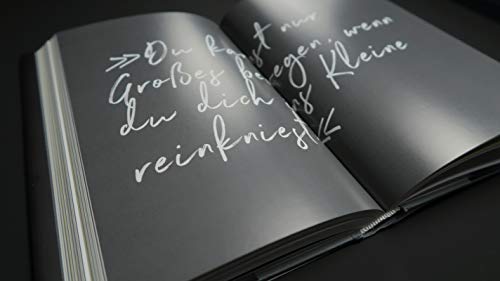 »Du kannst nur
Großes bewegen, wenn
du dich ins Kleine
reinkniest«